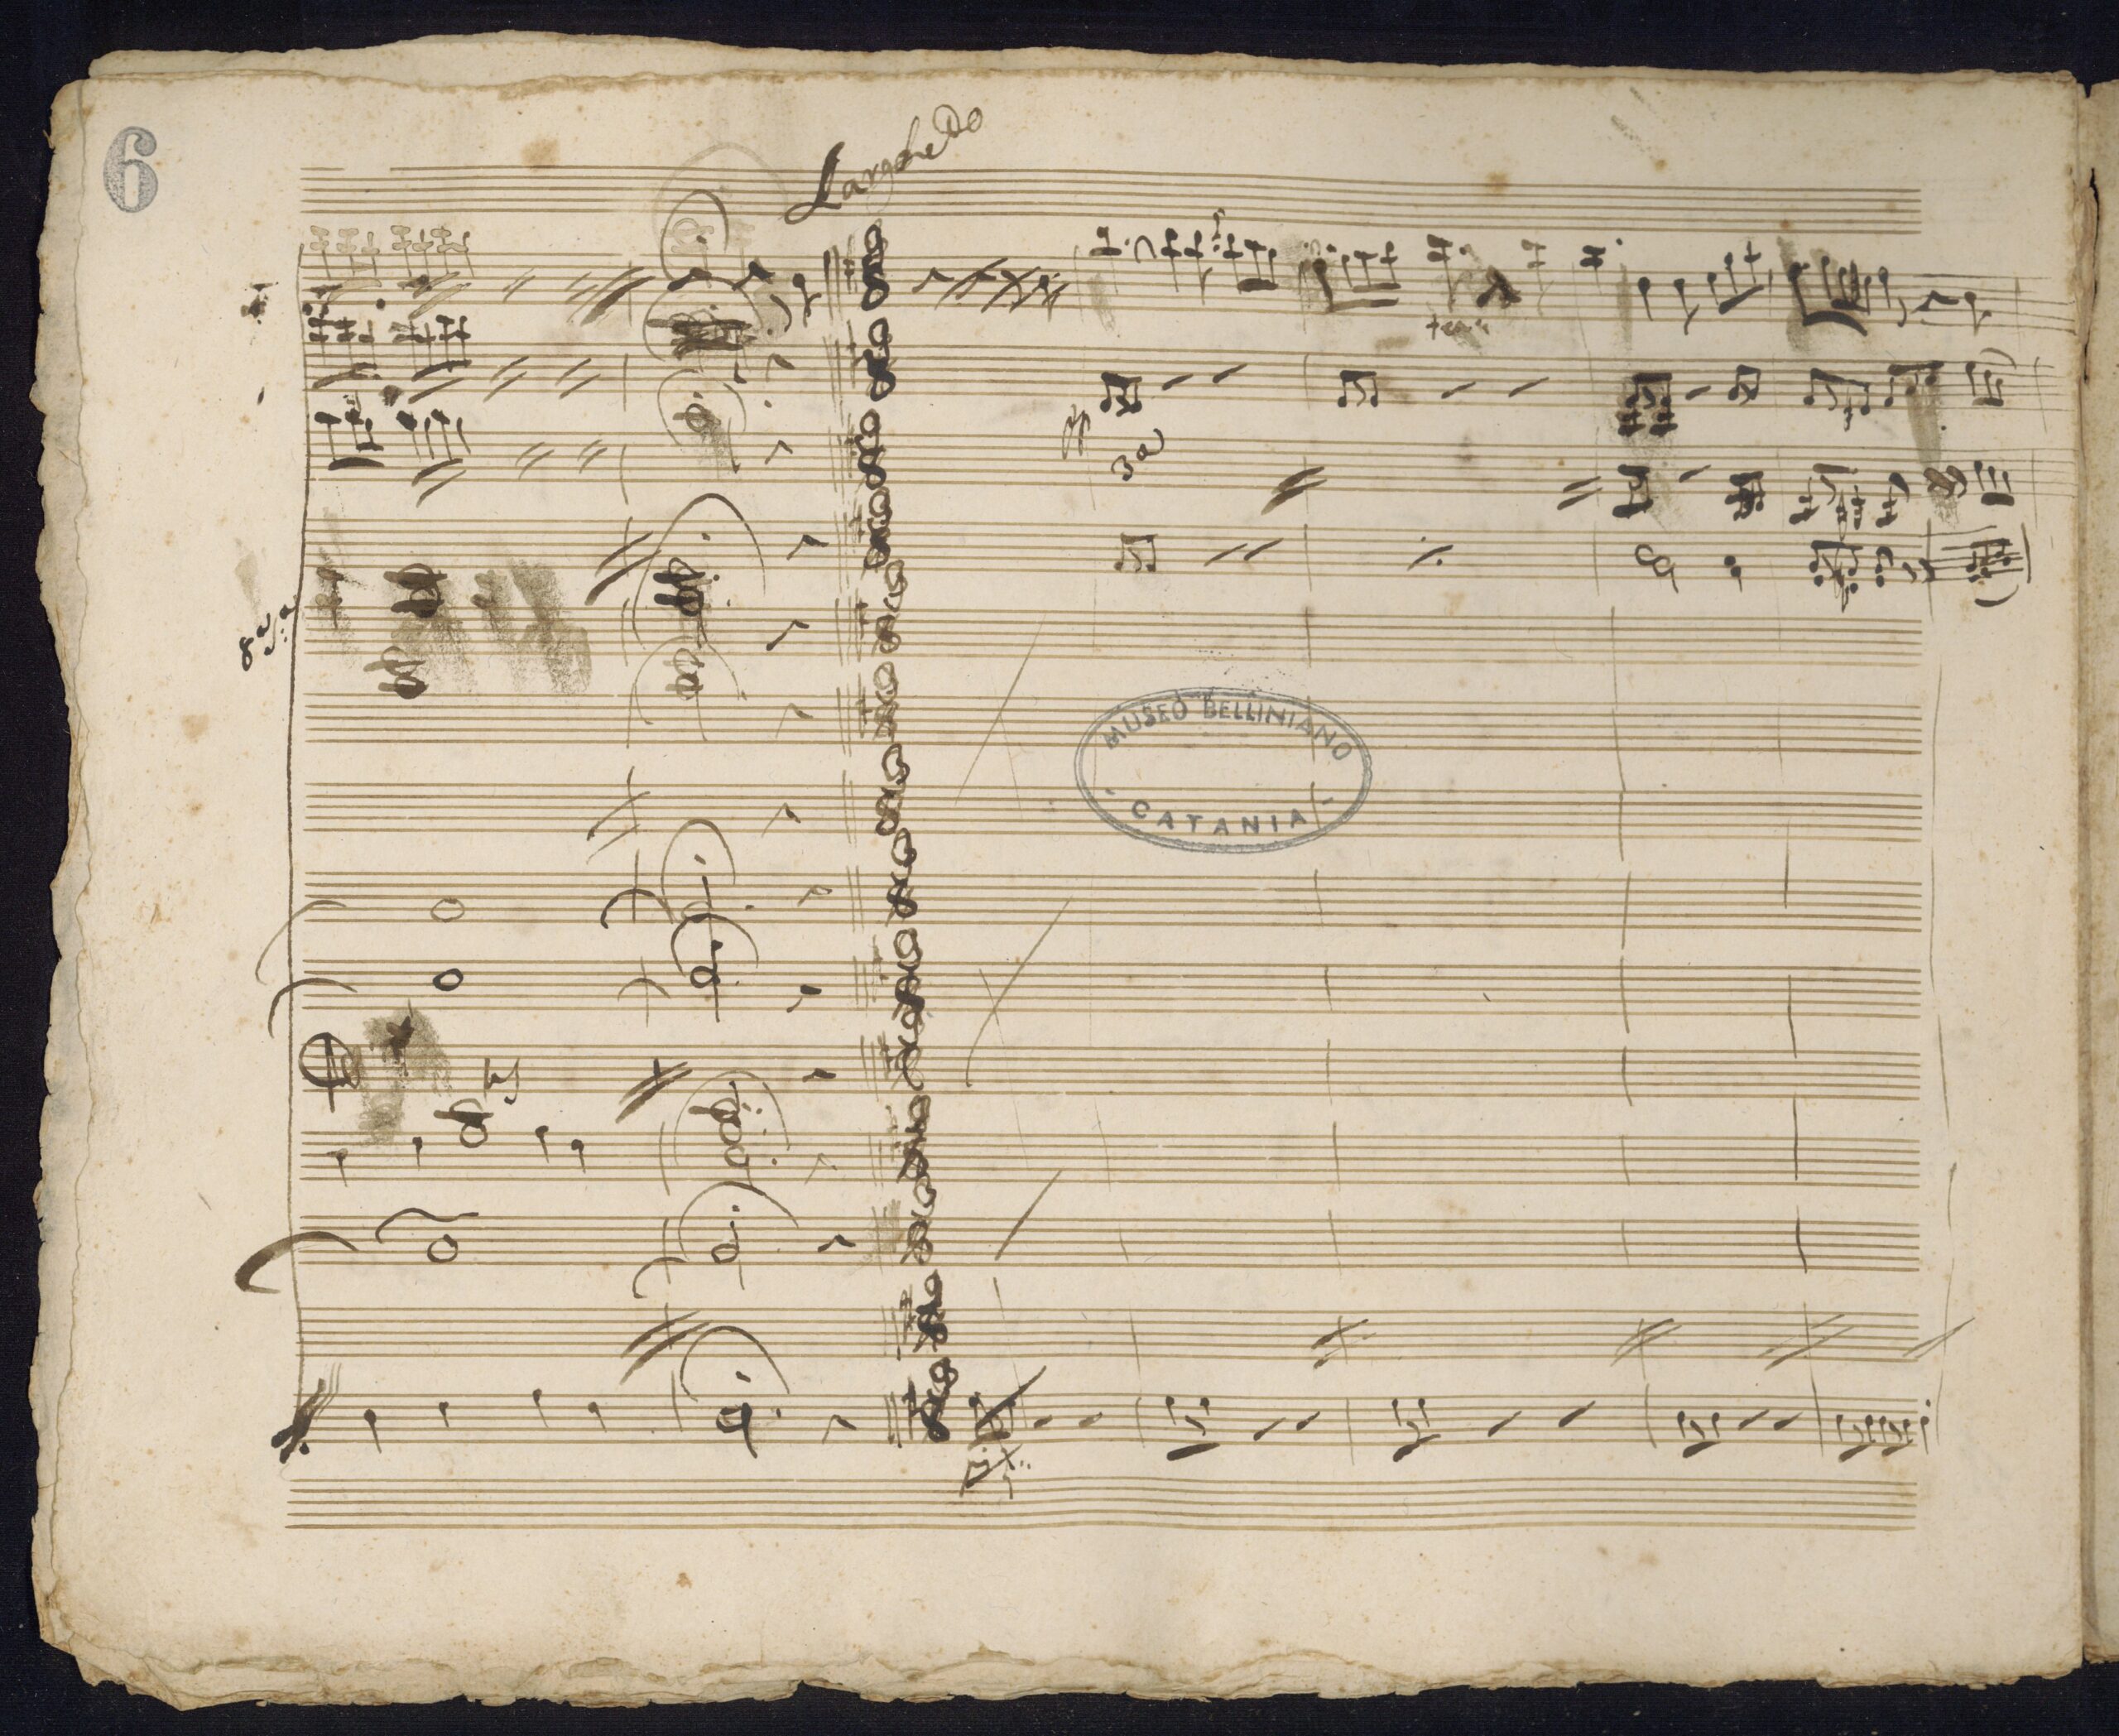 6
Larghetto
pp
3a
8va
MUSEO BELLINIANO
- CATANIA -